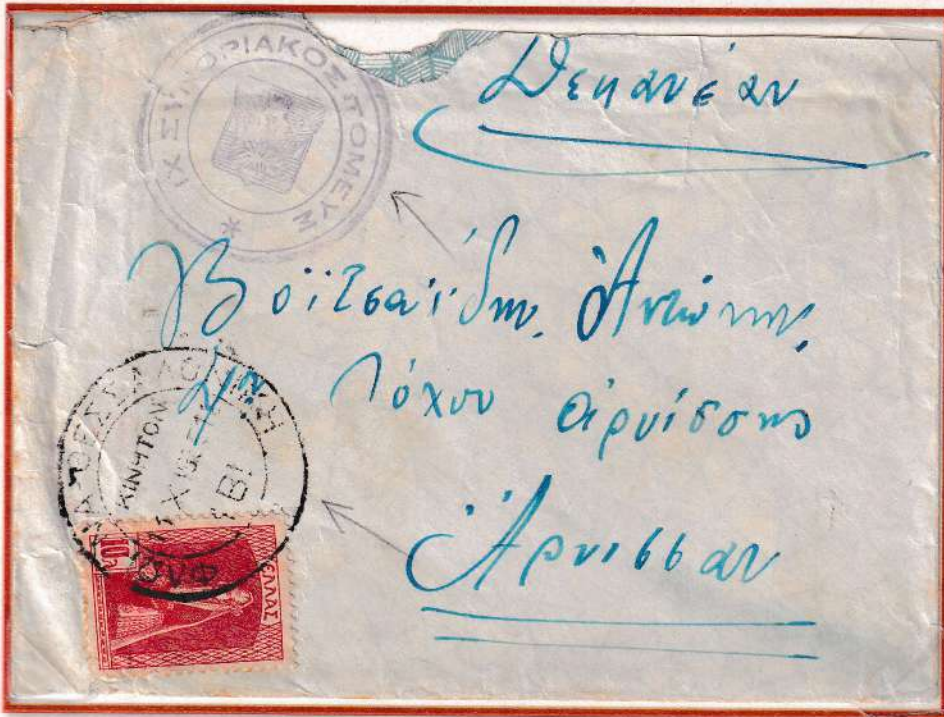 ΙΧ ΣΥΝΟΡΙΑΚΟΣ ΤΟΜΕΥΣ *
Δεκανέαν
Βοϊτσαΐδην Ἀντώνιον,
4ον λόχον Ἀρνίσσης
Ἄρνισσαν
ΘΕΣΣΑΛΟΝΙΚΗ
ΚΙΝΗΤΟΝ
ΒΙ
ΦΛΩ
10
ΕΛΛΑΣ